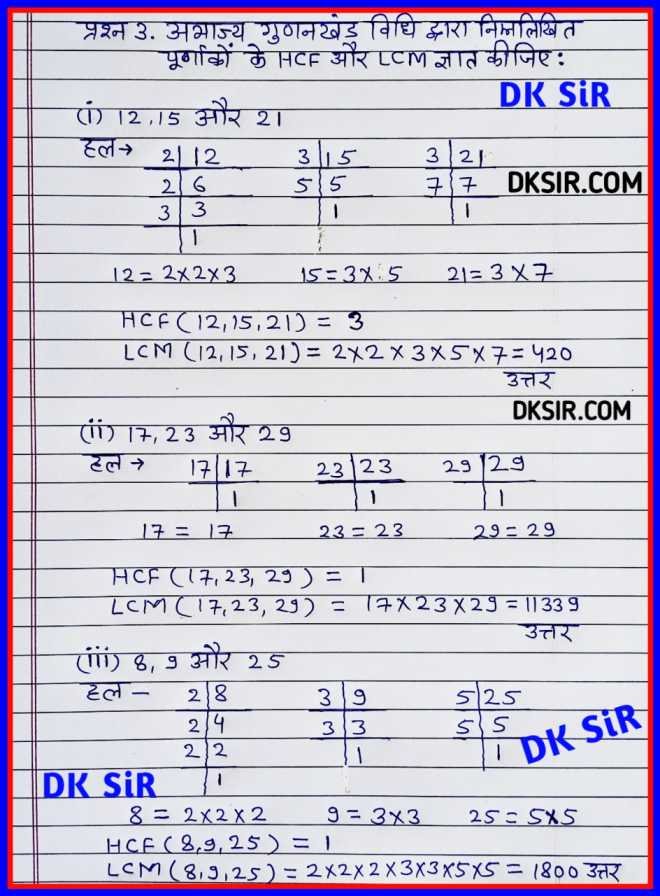 प्रश्न 3. अभाज्य गुणनखंड विधि द्वारा निम्नलिखित
पूर्णाकों के HCF और LCM ज्ञात कीजिए:
DK SiR
(i) 12,15 और 21
हल→ 2 12 3 15 3 21
2 6 5 5 7 7 DKSIR.COM
3 3 1 1
1
12=2×2×3 15=3×5 21=3×7
HCF(12,15,21) = 3
LCM (12,15,21)= 2×2×3×5×7=420
उत्तर
DKSIR.COM
(ii) 17,23 और 29
हल → 17 17 23 23 29 29
1 1 1
17 = 17 23=23 29=29
HCF(17,23,29) = 1
LCM(17,23,29) = 17×23×29=11339
उत्तर
(iii) 8,9 और 25
हल – 2 8 3 9 5 25
2 4 3 3 5 5 DK SiR
2 2 1 1
DK SiR 1
8 = 2×2×2 9=3×3 25=5×5
HCF(8,9,25) = 1
LCM(8,9,25)=2×2×2×3×3×5×5=1800 उत्तर